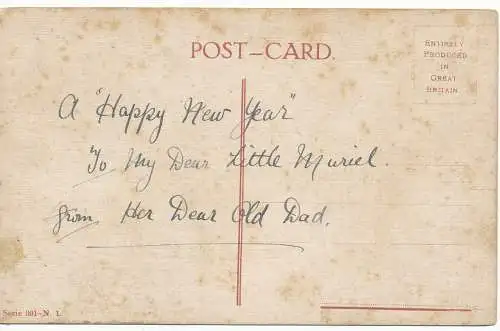 POST-CARD.
ENTIRELY
PRODUCED
IN
GREAT
BRITAIN
A "Happy New Year"
To My Dear Little Muriel.
from Her Dear Old Dad.
Serie 001-N. 1.